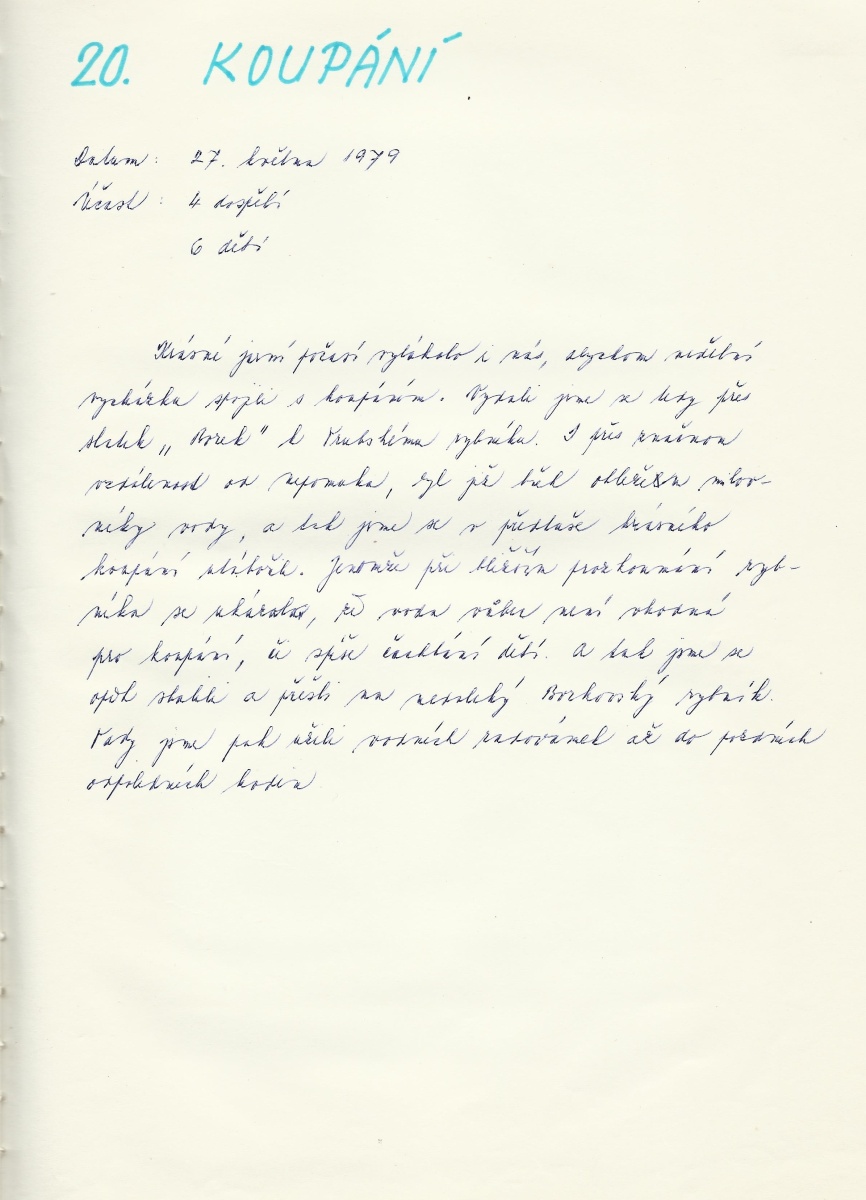 20. KOUPÁNÍ
Datum: 27. května 1979
Účast: 4 dospělí
6 dětí
Krásné jarní počasí vylákalo i nás, abychom nedělní
vycházku spojili s koupáním. Vydali jsme se tedy přes
statek „Borek" k Vrubskému rybníku. I přes značnou
vzdálenost od Nepomuka, byl již také obležen milov-
níky vody, a tak jsme se v předtuše krásného
koupání utábořili. Jenomže při bližším prozkoumání ryb-
níka se ukázalo, že voda vůbec není vhodná
pro koupání, či spíše čachtání dětí. A tak jsme se
opět sbalili a přešli na nedaleký Bozkovský rybník.
Tady jsme pak užili vodních radovánek až do pozdních
odpoledních hodin